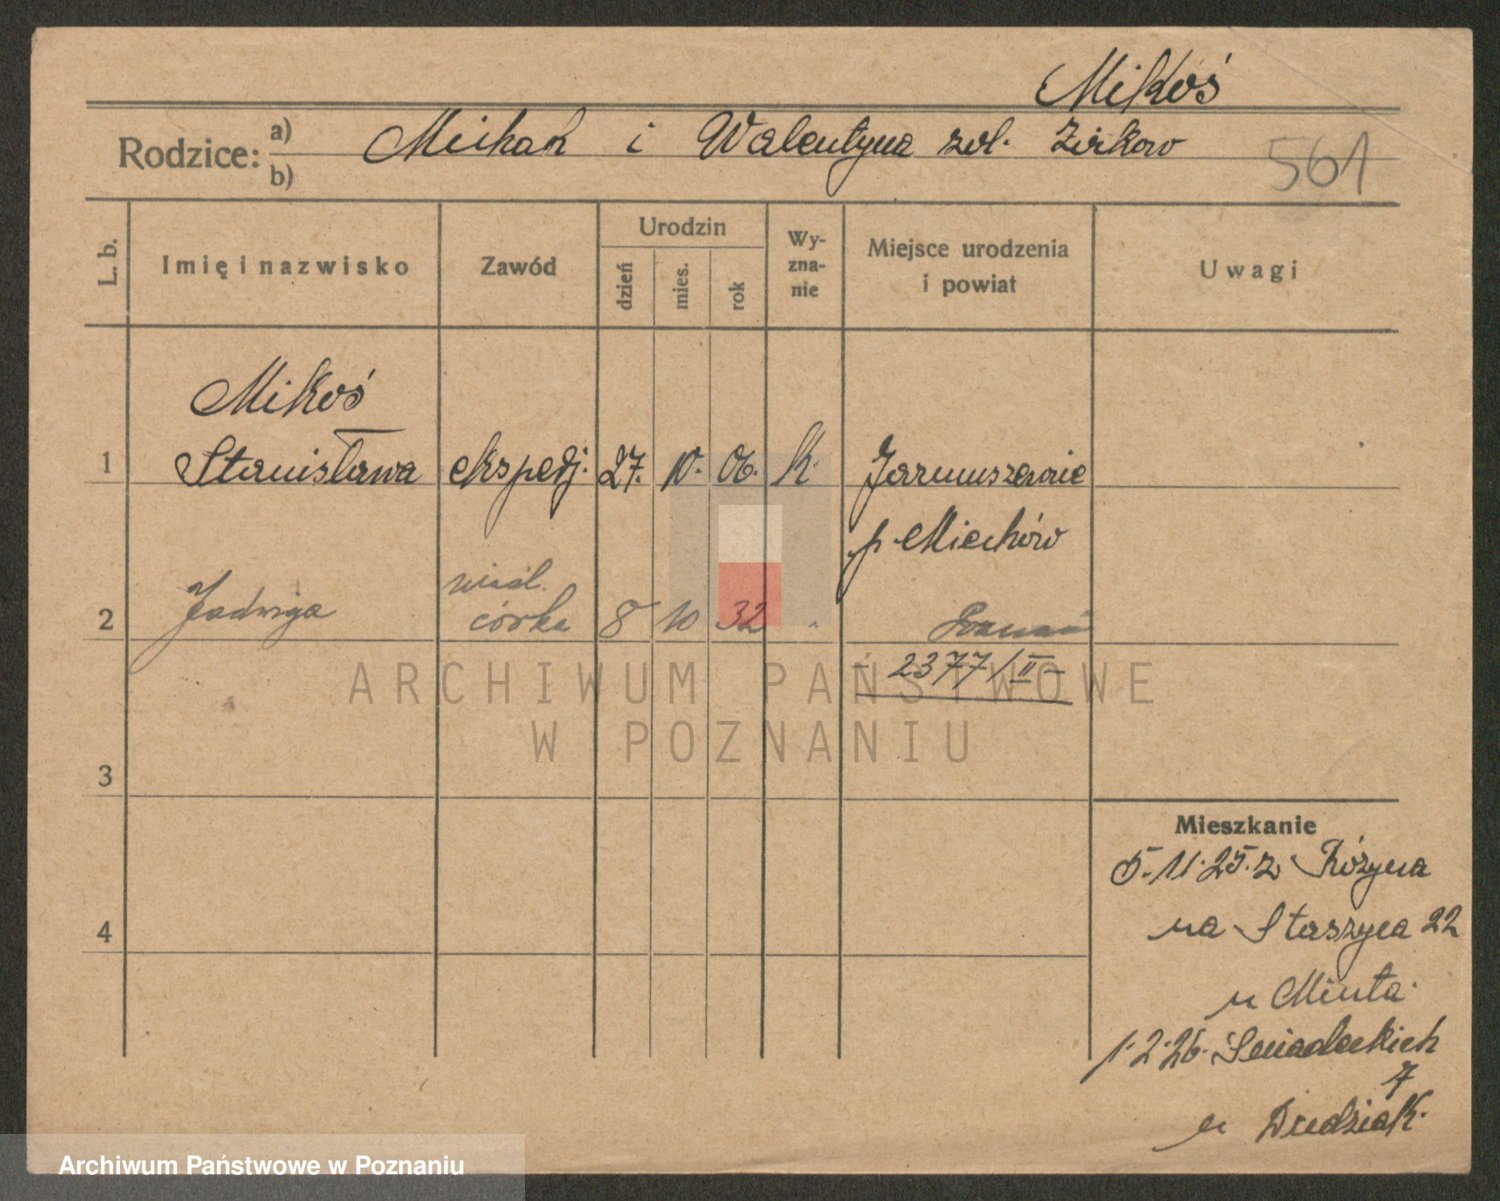 Mikoś
Rodzice: a) Michał i Walentyna zd. Zirkow
b)
561
L. b.
Imię i nazwisko
Zawód
Urodzin
dzień
mies.
rok
Wy-
zna-
nie
Miejsce urodzenia
i powiat
Uwagi
Mikoś
1 Stanisława ekspedj. 27. 10. 06. K. Jarmuszewie
p. Miechów
2 Jadwiga córka 8 10 32 Poznań
- 2377/II -
3
4
Mieszkanie
5.11.25. z Różyna
na Staszyca 22
u Minta.
1.2.26. Śniadeckich
7
u Dudziak.
ARCHIWUM PAŃSTWOWE
W POZNANIU
Archiwum Państwowe w Poznaniu